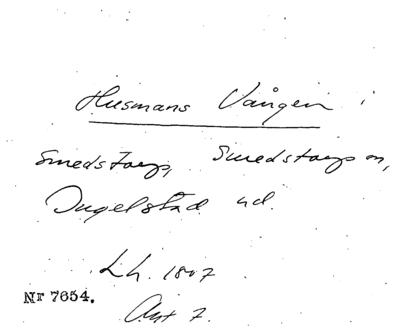 Husmans Vången i
Smedstorp, Smedstorps sn,
Ingelstad hd.
Lh. 1807
Akt 7.
Nr 7654.